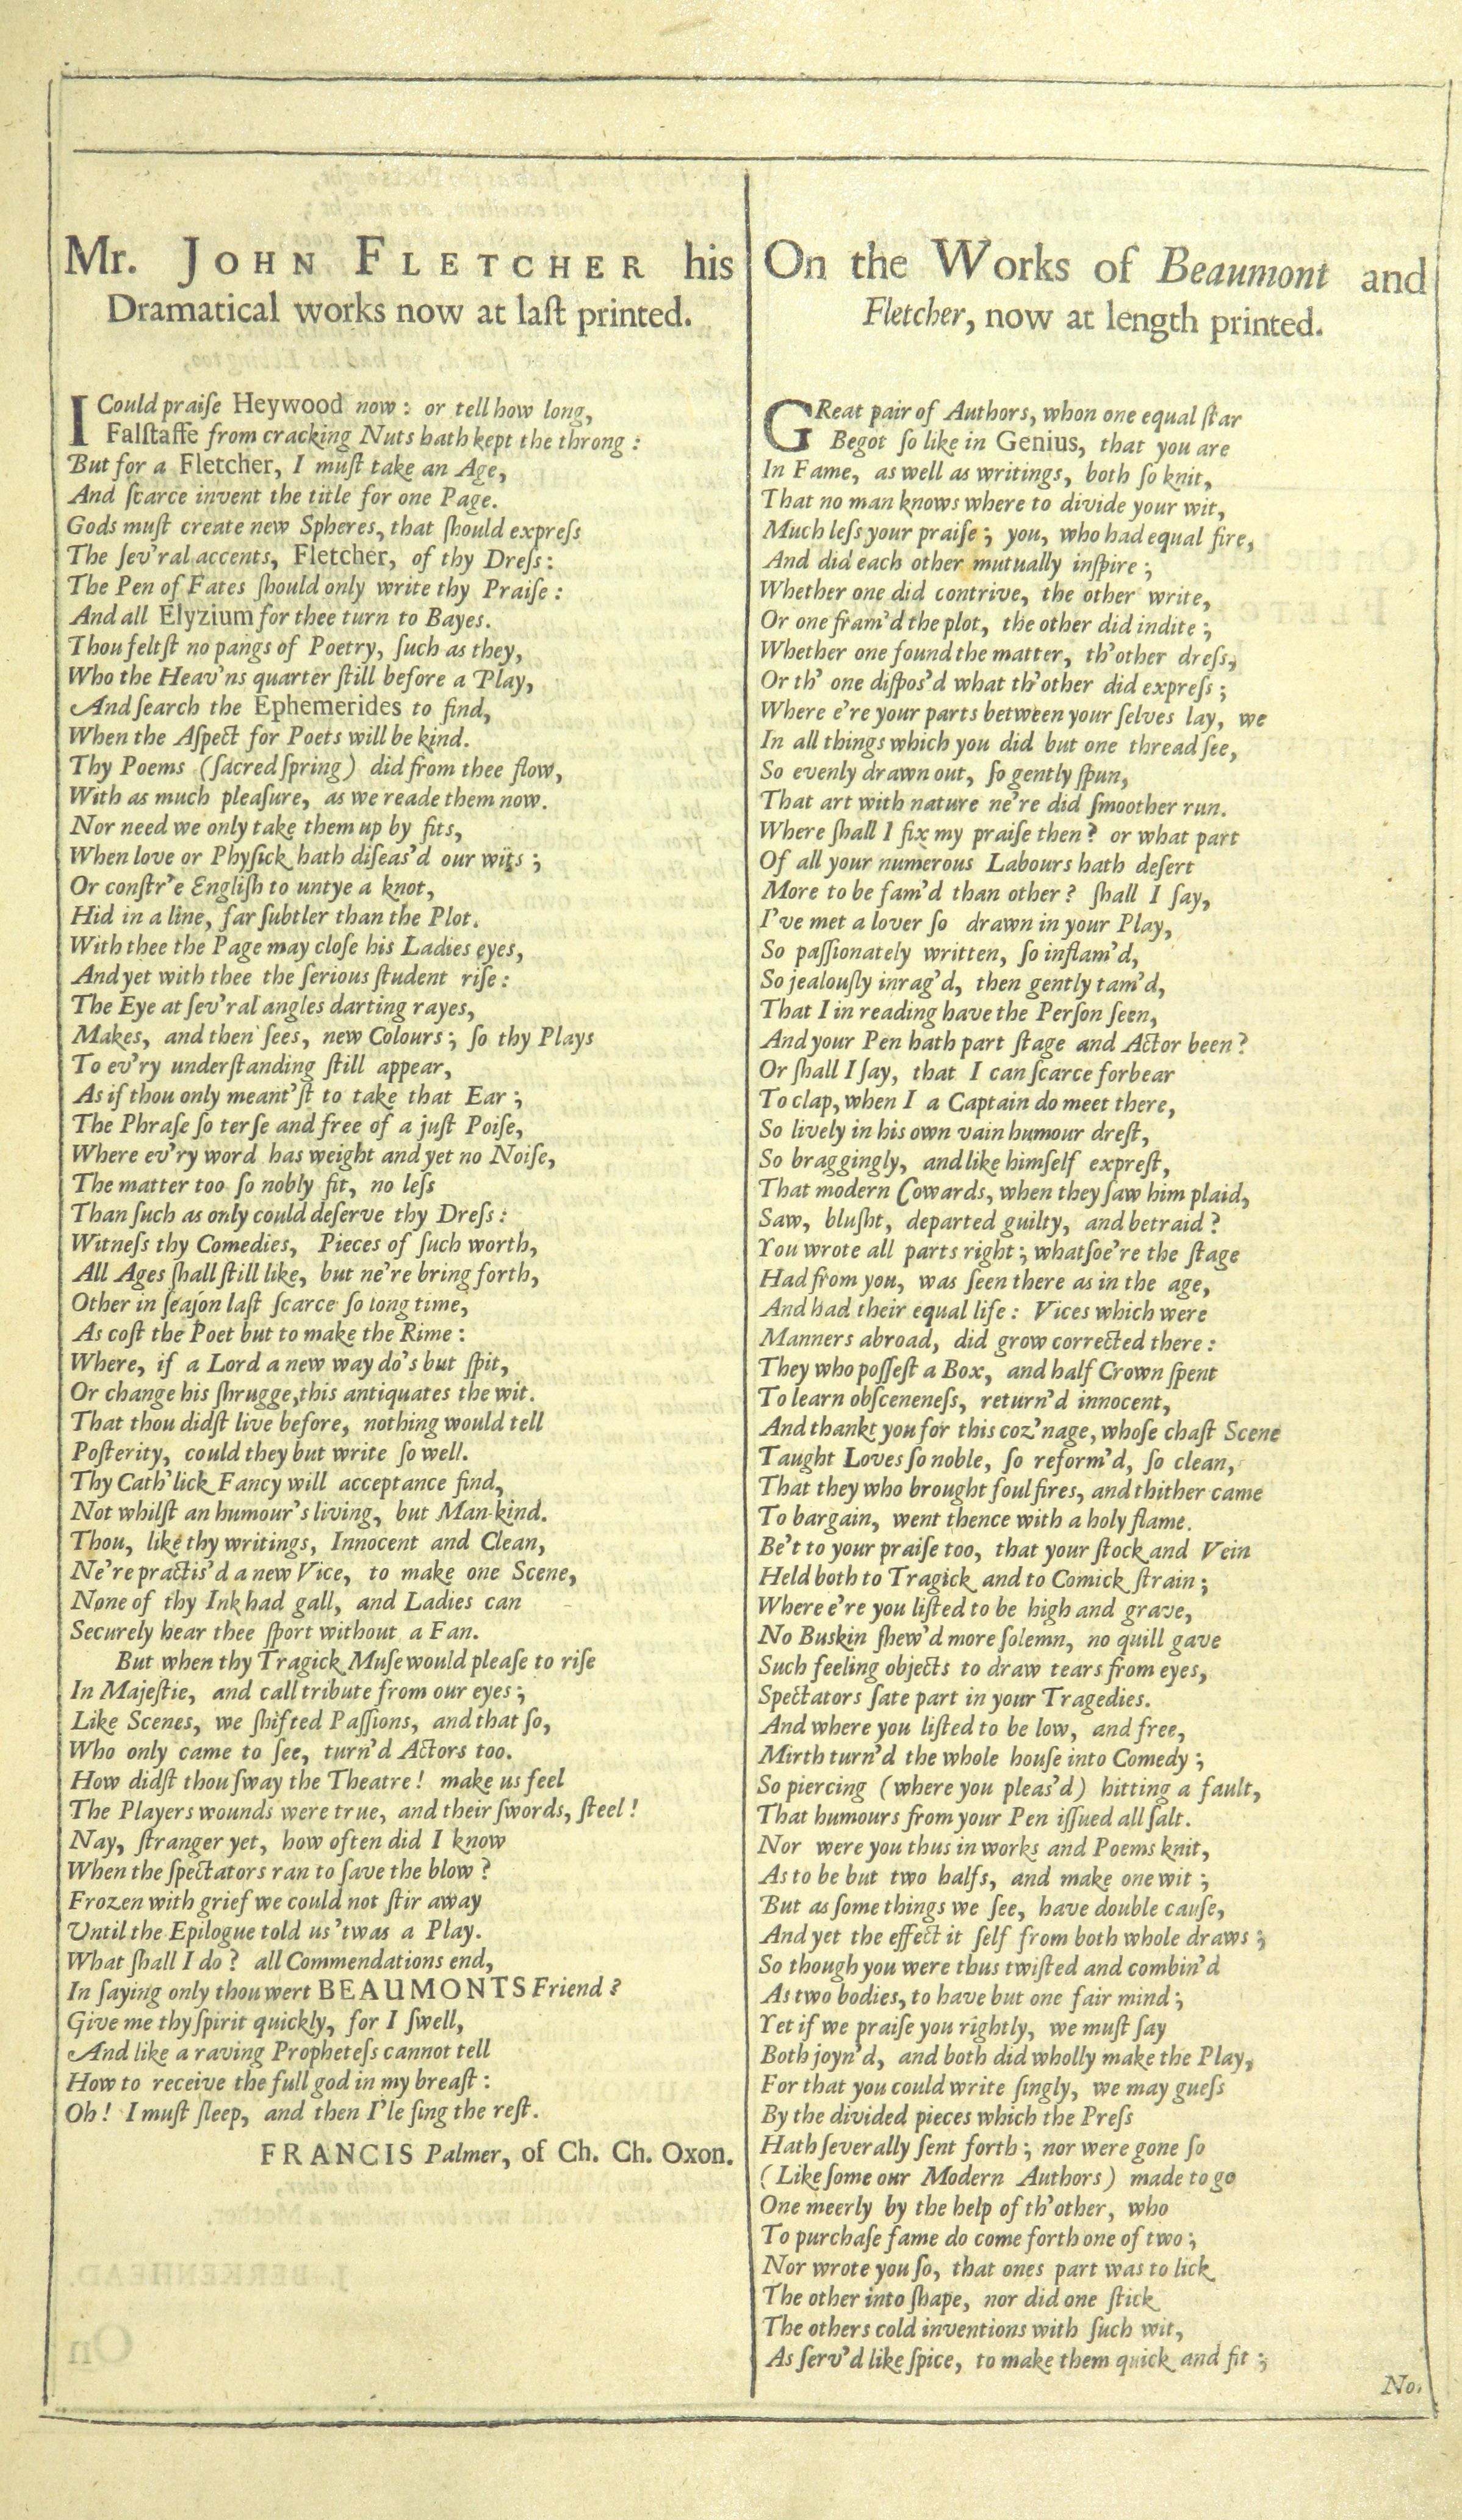 Mr. JOHN FLETCHER his
Dramatical works now at laſt printed.
I Could praiſe Heywood now: or tell how long,
Falſtaffe from cracking Nuts hath kept the throng:
But for a Fletcher, I muſt take an Age,
And ſcarce invent the title for one Page.
Gods muſt create new Spheres, that ſhould expreſs
The ſev'ral accents, Fletcher, of thy Dreſs:
The Pen of Fates ſhould only write thy Praiſe:
And all Elyzium for thee turn to Bayes.
Thou feltſt no pangs of Poetry, ſuch as they,
Who the Heav'ns quarter ſtill before a Play,
And ſearch the Ephemerides to find,
When the Aſpect for Poets will be kind.
Thy Poems (ſacred ſpring) did from thee flow,
With as much pleaſure, as we reade them now.
Nor need we only take them up by fits,
When love or Phyſick hath diſeas'd our wits;
Or conſtr'e Engliſh to untye a knot,
Hid in a line, far ſubtler than the Plot.
With thee the Page may cloſe his Ladies eyes,
And yet with thee the ſerious ſtudent riſe:
The Eye at ſev'ral angles darting rayes,
Makes, and then ſees, new Colours; ſo thy Plays
To ev'ry underſtanding ſtill appear,
As if thou only meant'ſt to take that Ear;
The Phraſe ſo terſe and free of a juſt Poiſe,
Where ev'ry word has weight and yet no Noiſe,
The matter too ſo nobly fit, no leſs
Than ſuch as only could deſerve thy Dreſs:
Witneſs thy Comedies, Pieces of ſuch worth,
All Ages ſhall ſtill like, but ne're bring forth,
Other in ſeaſon laſt ſcarce ſo long time,
As coſt the Poet but to make the Rime:
Where, if a Lord a new way do's but ſpit,
Or change his ſhrugge, this antiquates the wit.
That thou didſt live before, nothing would tell
Poſterity, could they but write ſo well.
Thy Cath'lick Fancy will acceptance find,
Not whilſt an humour's living, but Man-kind.
Thou, like thy writings, Innocent and Clean,
Ne're practis'd a new Vice, to make one Scene,
None of thy Ink had gall, and Ladies can
Securely hear thee ſport without a Fan.
But when thy Tragick Muſe would pleaſe to riſe
In Majeſtie, and call tribute from our eyes;
Like Scenes, we ſhifted Paſſions, and that ſo,
Who only came to ſee, turn'd Actors too.
How didſt thou ſway the Theatre! make us feel
The Players wounds were true, and their ſwords, ſteel!
Nay, ſtranger yet, how often did I know
When the ſpectators ran to ſave the blow?
Frozen with grief we could not ſtir away
Until the Epilogue told us 'twas a Play.
What ſhall I do? all Commendations end,
In ſaying only thou wert BEAUMONTS Friend?
Give me thy ſpirit quickly, for I ſwell,
And like a raving Propheteſs cannot tell
How to receive the full god in my breaſt:
Oh! I muſt ſleep, and then I'le ſing the reſt.
FRANCIS Palmer, of Ch. Ch. Oxon.
On the Works of Beaumont and
Fletcher, now at length printed.
GReat pair of Authors, whon one equal ſtar
Begot ſo like in Genius, that you are
In Fame, as well as writings, both ſo knit,
That no man knows where to divide your wit,
Much leſs your praiſe; you, who had equal fire,
And did each other mutually inſpire;
Whether one did contrive, the other write,
Or one fram'd the plot, the other did indite;
Whether one found the matter, th'other dreſs,
Or th' one diſpos'd what th'other did expreſs;
Where e're your parts between your ſelves lay, we
In all things which you did but one thread ſee,
So evenly drawn out, ſo gently ſpun,
That art with nature ne're did ſmoother run.
Where ſhall I fix my praiſe then? or what part
Of all your numerous Labours hath deſert
More to be fam'd than other? ſhall I ſay,
I've met a lover ſo drawn in your Play,
So paſſionately written, ſo inflam'd,
So jealouſly inrag'd, then gently tam'd,
That I in reading have the Perſon ſeen,
And your Pen hath part ſtage and Actor been?
Or ſhall I ſay, that I can ſcarce forbear
To clap, when I a Captain do meet there,
So lively in his own vain humour dreſt,
So braggingly, and like himſelf expreſt,
That modern Cowards, when they ſaw him plaid,
Saw, bluſht, departed guilty, and betraid?
You wrote all parts right; whatſoe're the ſtage
Had from you, was ſeen there as in the age,
And had their equal life: Vices which were
Manners abroad, did grow corrected there:
They who poſſeſt a Box, and half Crown ſpent
To learn obſceneneſs, return'd innocent,
And thankt you for this coz'nage, whoſe chaſt Scene
Taught Loves ſo noble, ſo reform'd, ſo clean,
That they who brought foul fires, and thither came
To bargain, went thence with a holy flame.
Be't to your praiſe too, that your ſtock and Vein
Held both to Tragick and to Comick ſtrain;
Where e're you liſted to be high and grave,
No Buskin ſhew'd more ſolemn, no quill gave
Such feeling objects to draw tears from eyes,
Spectators ſate part in your Tragedies.
And where you liſted to be low, and free,
Mirth turn'd the whole houſe into Comedy;
So piercing (where you pleas'd) hitting a fault,
That humours from your Pen iſſued all ſalt.
Nor were you thus in works and Poems knit,
As to be but two halfs, and make one wit;
But as ſome things we ſee, have double cauſe,
And yet the effect it ſelf from both whole draws;
So though you were thus twiſted and combin'd
As two bodies, to have but one fair mind;
Yet if we praiſe you rightly, we muſt ſay
Both joyn'd, and both did wholly make the Play,
For that you could write ſingly, we may gueſs
By the divided pieces which the Preſs
Hath ſeverally ſent forth; nor were gone ſo
(Like ſome our Modern Authors) made to go
One meerly by the help of th'other, who
To purchaſe fame do come forth one of two;
Nor wrote you ſo, that ones part was to lick
The other into ſhape, nor did one ſtick
The others cold inventions with ſuch wit,
As ſerv'd like ſpice, to make them quick and fit;
No.